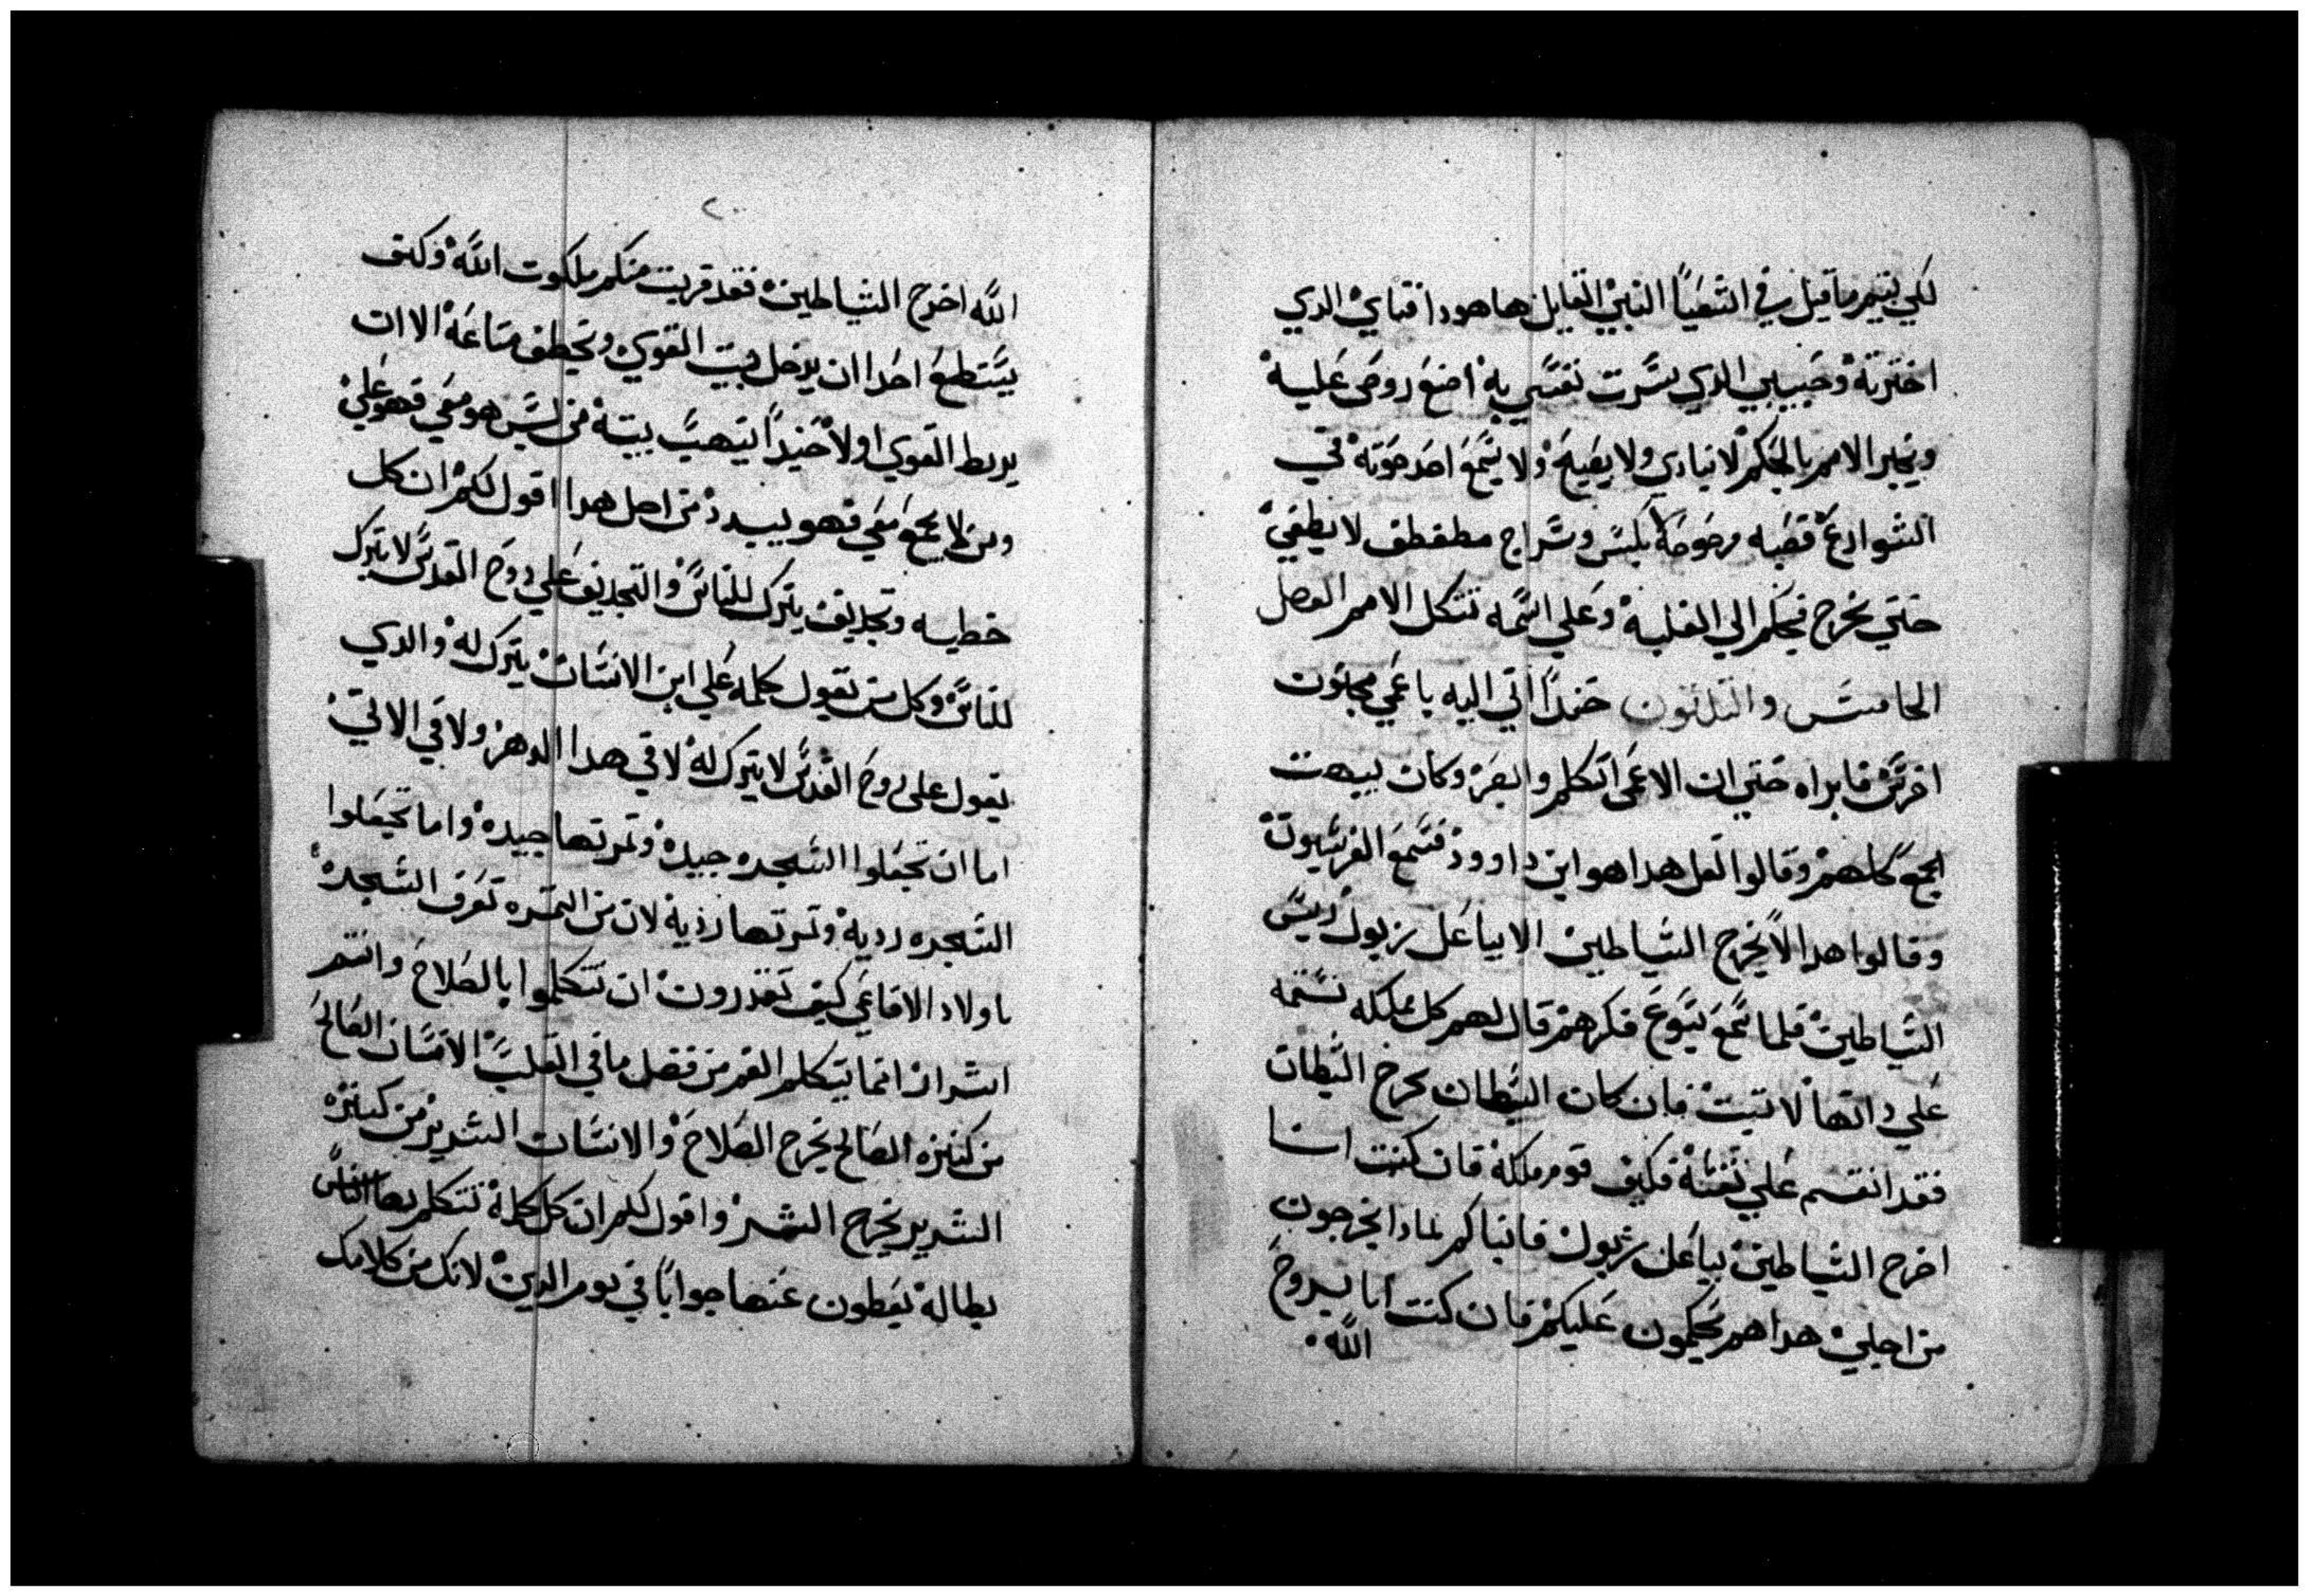 لكي يتم ما قيل في اشعيا النبي القايل هاهودا فتاي الدي
اخترته وحبيبي الدي سرت نفسي به اضع روحي عليه
ويخبر الامم بالحكم لا يمادي ولا يصيح ولا يسمع احد صوته في
الشوارع قصبه مرضوضه لا يكسر وسراج مطفطف لا يطفي
حتي يخرج الحكم الي الغلبه وعلي اسمه تتكل الامم الفصل
الخامس والتلتون حينيدا اتي اليه باعمي مجنون
اخرس فابراه حتي ان الاعمي اتكلم وابصر وكان يبهت
الجمع كلهم وقالوا لعل هدا هو ابن داوود فسمع الفريسيون
وقالوا هدا لا يخرج الشياطين الا بباعل زبول رييس
الشياطين فلما سمع يسوع فكرهم قال لهم كل مملكه تنقسم
علي داتها لا تتبت فان كان الشيطان يخرج الشيطان
فقد انقسم علي نفسه فكيف تقوم مملكته فان كنت انا
اخرج الشياطين بباعل زبول فابناكم بمادا يخرجون
من اجل هدا هم يحكمون عليكم فان كنت انا بروح
الله
٢٠
الله اخرج الشياطين فقد قربت منكم ملكوت الله وكيف
يستطيع احدا ان يدخل بيت القوي ويخطف متاعه الا ان
يربط القوي اولا حينيدا ينهب بيته من ليس هو معي فهو علي
ومن لا يجمع معي فهو يبدد من اجل هدا اقول لكم ان كل
خطيه وتجديف يترك للناس والتجديف علي روح القدس لا يترك
للناس وكل من يقول كلمه علي ابن الانسان يترك له والدي
يقول علي روح القدس لا يترك له لا في هدا الدهر ولا في الاتي
اما ان تجعلوا الشجره جيده وتمرتها جيده واما تجعلوا
الشجره رديه وتمرتها رديه لان من التمره تعرف الشجره
يا اولاد الافاعي كيف تقدرون ان تتكلموا بالصلاح وانتم
اشرار انما يتكلم الفم من فضل ما في القلب الانسان الصالح
من كنزه الصالح يخرج الصلاح والانسان الشرير من كنزه
الشرير يخرج الشر واقول لكم ان كل كلمه تتكلم بها الناس
بطاله يعطون عنها جوابا في يوم الدين لانك من كلامك